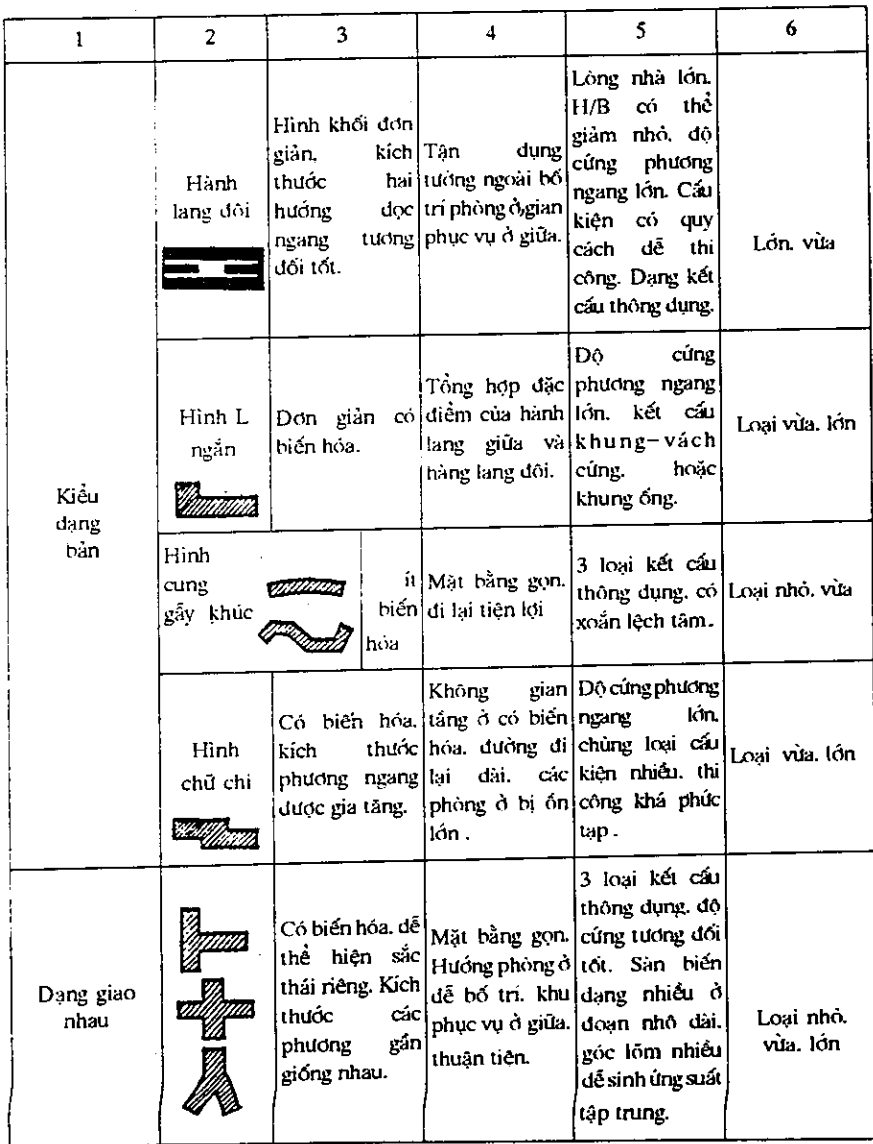 1
2
3
4
5
6
Kiểu
dạng
bản
Hành
lang đôi
Hình khối đơn
giản, kích
thước hai
hướng dọc
ngang tương
đối tốt.
Tận dụng
tường ngoài bố
trí phòng ở,gian
phục vụ ở giữa.
Lòng nhà lớn.
H/B có thể
giảm nhỏ, độ
cứng phương
ngang lớn. Cấu
kiện có quy
cách dễ thi
công. Dạng kết
cấu thông dụng.
Lớn. vừa
Hình L
ngắn
Đơn giản có
biến hóa.
Tổng hợp đặc
điểm của hành
lang giữa và
hàng lang đôi.
Độ cứng
phương ngang
lớn. kết cấu
khung-vách
cứng. hoặc
khung ống.
Loại vừa. lớn
Hình
cung
gẫy khúc
ít
biến
hóa
Mặt bằng gọn.
đi lại tiện lợi
3 loại kết cấu
thông dụng. có
xoắn lệch tâm.
Loại nhỏ. vừa
Hình
chữ chi
Có biến hóa.
kích thước
phương ngang
được gia tăng.
Không gian
tầng ở có biến
hóa. đường đi
lại dài. các
phòng ở bị ồn
lớn .
Độ cứng phương
ngang lớn.
chủng loại cấu
kiện nhiều. thi
công khá phức
tạp .
Loại vừa. lớn
Dạng giao
nhau
Có biến hóa. dễ
thể hiện sắc
thái riêng. Kích
thước các
phương gần
giống nhau.
Mặt bằng gọn.
Hướng phòng ở
dễ bố trí. khu
phục vụ ở giữa.
thuận tiên.
3 loại kết cấu
thông dụng. độ
cứng tương đối
tốt. Sàn biến
dạng nhiều ở
đoạn nhô dài.
góc lõm nhiều
dễ sinh ứng suất
tập trung.
Loại nhỏ.
vừa. lớn